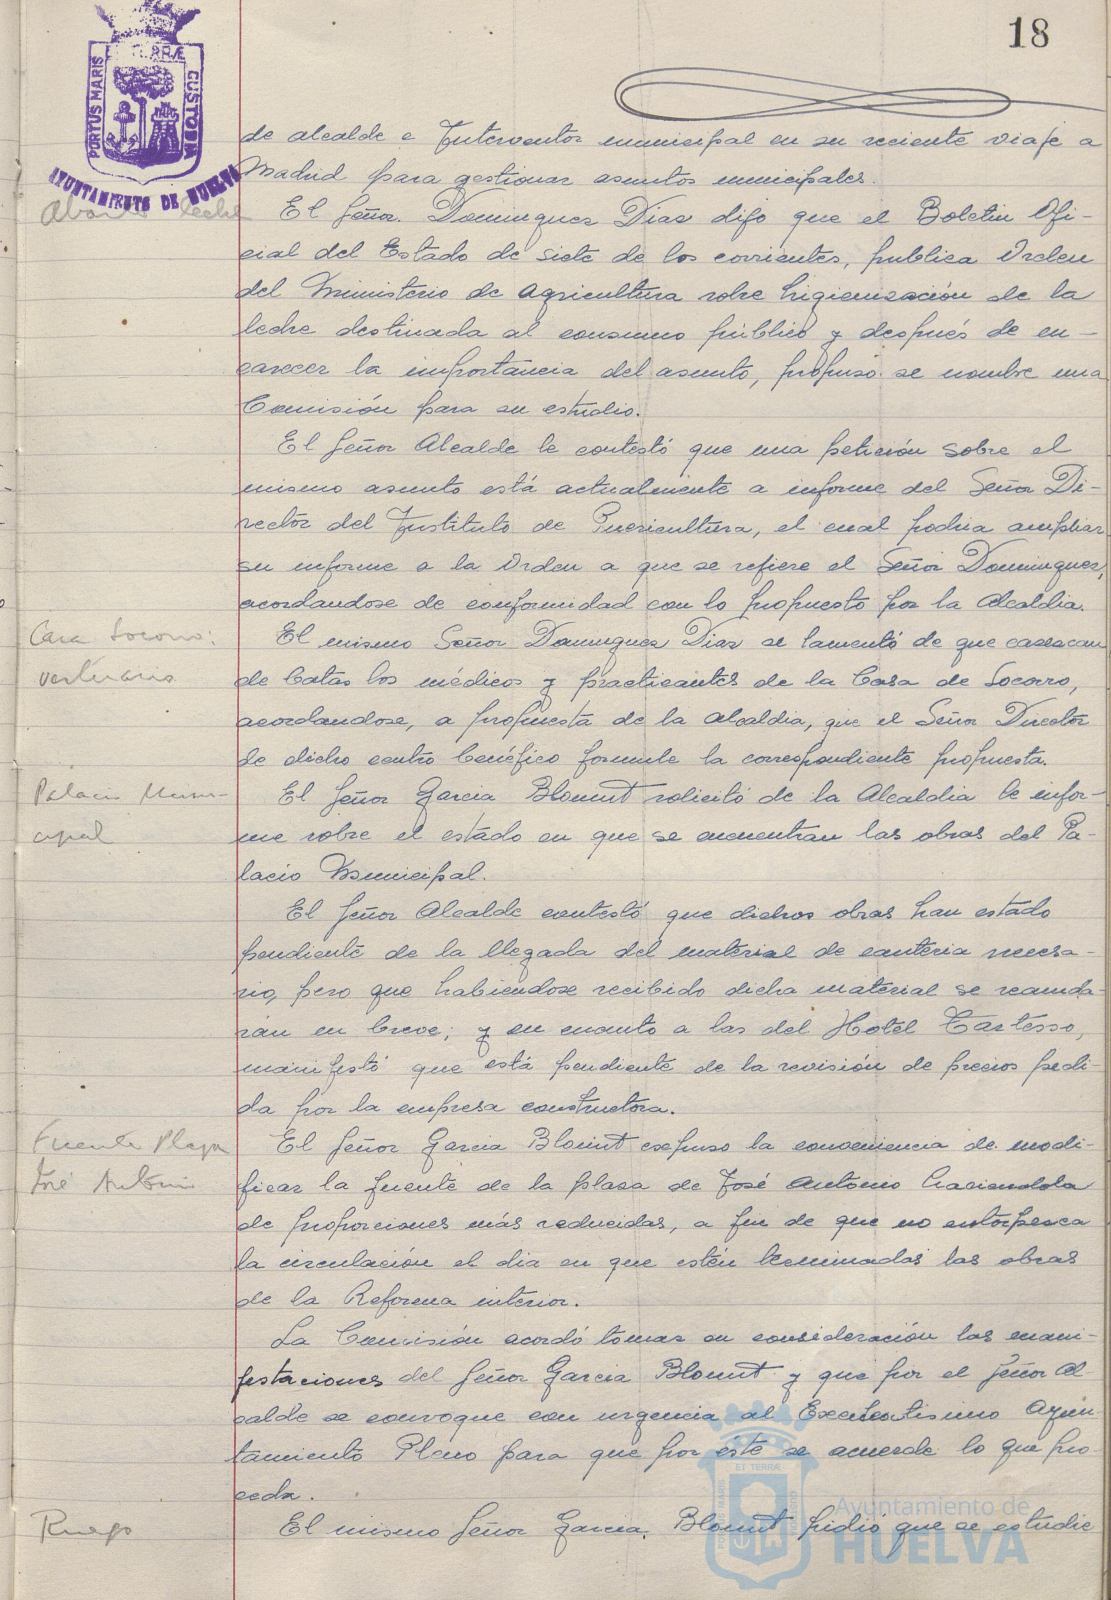 18
PORTUS MARIS ET TERRÆ CUSTODIA
AYUNTAMIENTO DE HUELVA
de alcalde e Interventor municipal en su reciente viaje a
Madrid para gestionar asuntos municipales.
Abasto leche
El Señor Domingues Dias dijo que el Boletin Ofi-
cial del Estado de siete de los corrientes, publica Orden
del Ministerio de Agricultura sobre higienización de la
leche destinada al consumo público y después de en-
carecer la importancia del asunto, propuso se nombre una
Comisión para su estudio.
El Señor Alcalde le contestó que una petición sobre el
mismo asunto está actualmente a informe del Señor Di-
rector del Instituto de Puericultura, el cual podria ampliar
su informe a la Orden a que se refiere el Señor Domingues,
acordandose de conformidad con lo propuesto por la Alcaldia.
Casa Socorro:
vestuario
El mismo Señor Domingues Dias se lamentó de que carezcan
de batas los médicos y practicantes de la Casa de Socorro,
acordandose, a propuesta de la alcaldia, que el Señor Director
de dicho centro benéfico formule la correspondiente propuesta.
Palacio Muni-
cipal
El Señor Garcia Blount solicitó de la Alcaldia le infor-
me sobre el estado en que se encuentran las obras del Pa-
lacio Municipal.
El Señor Alcalde contestó que dichas obras han estado
pendiente de la llegada del material de canteria necesa-
rio, pero que habiendose recibido dicha material se reanuda-
rán en breve; y en cuanto a las del Hotel Tartesso,
manifestó que está pendiente de la revisión de precios pedi-
da por la empresa constructora.
Fuente Plaza
José Antonio
El Señor Garcia Blount expuso la conveniencia de modi-
ficar la fuente de la plasa de José Antonio haciendola
de proporciones más reducidas, a fin de que no entorpezca
la circulación el dia en que estén terminadas las obras
de la Reforma interior.
La Comisión acordó tomar en consideración las mani-
festaciones del Señor Garcia Blount y que por el Señor Al
calde se convoque con urgencia al Excelentisimo Ayun-
tamiento Pleno para que por éste se acuerde lo que pro-
ceda.
Ruego
El mismo Señor Garcia Blount pidió que se estudie
Ayuntamiento de
HUELVA